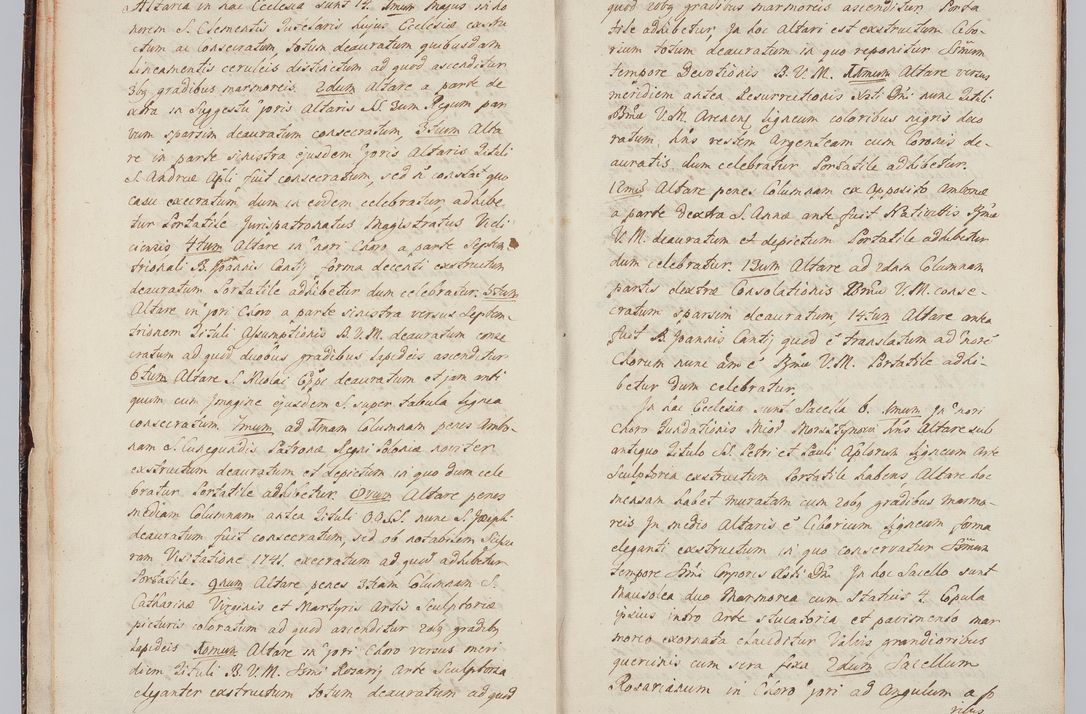 Altaria in hac Ecclesia sunt 14. 1mum Majus in ho
norem S. Clementis Tutelaris hujus Ecclesiæ exstru
ctum ac consecratum totum deauratum quibusdam
lineamentis ceruleis distinctum ad quod ascenditur
3bq gradibus marmoreis. 2dum Altare a parte de
xtra in Suggestu joris Altaris SS. 3um Regum par
vum sparsim deauratum consecratum, 3tium Alta
re in parte sinistra ejusdem joris Altaris Tituli
S. Andreæ Apli fuit consecratum, sed ñ constat quo
casu execratum dum in eodem celebratur adhibe
tur Portatile Jurispatronatus Magistratus Vieli
ciensis 4tum Altare in nori Choro a parte Septem
trionali B. Joannis Cantij forma decenti exstructum
deauratum Portatile adhibetur dum celebratur. 5tum
Altare in jori Choro a parte sinistra versus Septem
trionem Tituli Assumptionis B. V. M. deauratum conse
cratum ad quod duobus gradibus lapideis ascenditur
6tum Altare S. Nicolai Eppi deauratum et jam anti
quum cum Imagine ejusdem S. super tabula lignea
consecratum. 7mum ad 1mam Columnam penes Ambo
nam S. Cunegundis Patronæ Regni Poloniæ noviter
exstructum deauratum et depictum in quo dum cele
bratur Portatile adhibetur. 8vum Altare penes
mediam Columnam antea Tituli OO.SS. nunc S. Joseph
deauratum fuit consecratum, sed ob notabilem
ram Visitatione 1741. execratum ad quod adhibetur
Portatile. 9num Altare penes 3tiam Columnam S.
Catharinæ Virginis et Martyris Artis Sculptoriæ
picturis coloratum ad quod ascenditur 2obq gradibq
lapideis 10mum Altare in jori Choro versus meri
diem Tituli B. V. M. SSmi Rosarij Arte Sculptoria
eleganter exstructum totum deauratum ad quod
quod 2obq gradibus marmoreis ascenditur Porta
tile adhibetur, In hoc Altari est exstructum Cibo-
rium totum deauratum in quo reponitur SSmum
tempore Devotionis B. V. M. 11mum Altare versus
meridiem antea Resurrectionis Xsti Dni nunc Tituli
Bmæ V. M. ligneum coloribus nigris deco
ratum, hñs vestem Argenteam cum Coronis de-
auratis. dum celebratur Portatile adhibetur.
12mũ Altare penes Columnam ex Opposito Ambonæ
a parte dextra S. Annæ ante fuit Nativittis Bmæ
V. M. deauratum et depictum Portatile adhibetur
dum celebratur. 13um Altare ad 2dam Columnam
partis dextræ Consolationis Bmæ V. M. conse-
cratum sparsim deauratum, 14tum Altare antea
fuit B. Joannis Cantij quod ẽ translatum ad norẽ
Chorum nunc ẽ Bmæ V. M. Portatile adhi-
betur dum celebratur.
In hac Ecclesia sunt Sacella 6. 1mum In nori
Choro Fundationis hñs Altare sub
antiquo Titulo SS. Petri et Pauli Aplorum ligneum Arte
Sculptoria exstructum Portatile habens, Altare hoc
mensam habet muratam cum 2obq gradibus marmo-
reis In medio Altaris ẽ Ciborium ligneum forma
eleganti exstructum in quo conservatur SSmum
tempore SSmi Corporis Xsti Dñi In hoc Sacello sunt
Mausolea duo Marmorea cum Statuis 4 Copula
ipsius intro Arte stucatoria et pavimento mar
moreo exornata clauditur Valvis grandioribus
quercinis cum sera fixa 2dum Sacellum
Rosarianum in Choro jori ad Angulum a fo
ribus